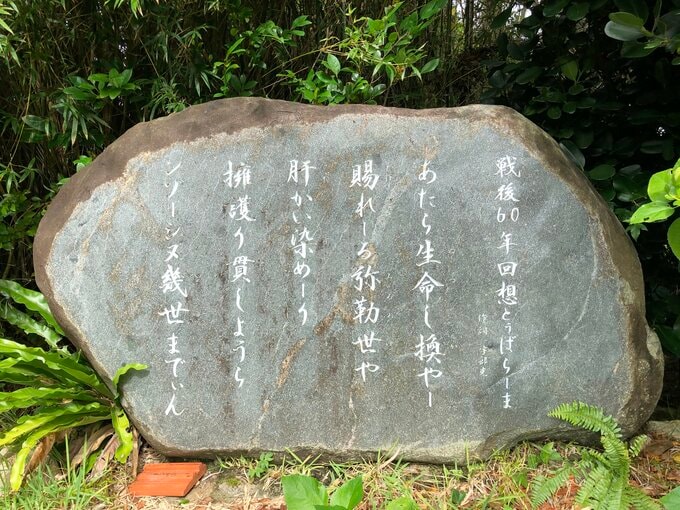 戦後60年回想とぅばらーま
あたら生命し換やー
賜れーる弥勒世や
肝かい染めーり
擁護り貫しょうら
ンゾーシヌ幾世までぃん